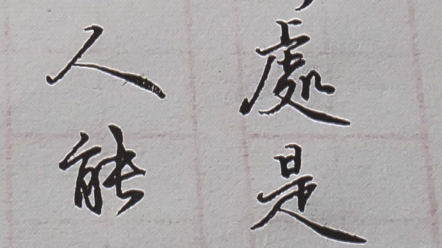 處是
人能